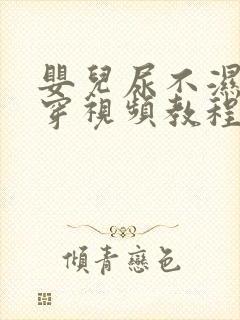 嬰兒尿不濕
穿視頻教程
傾青戀色